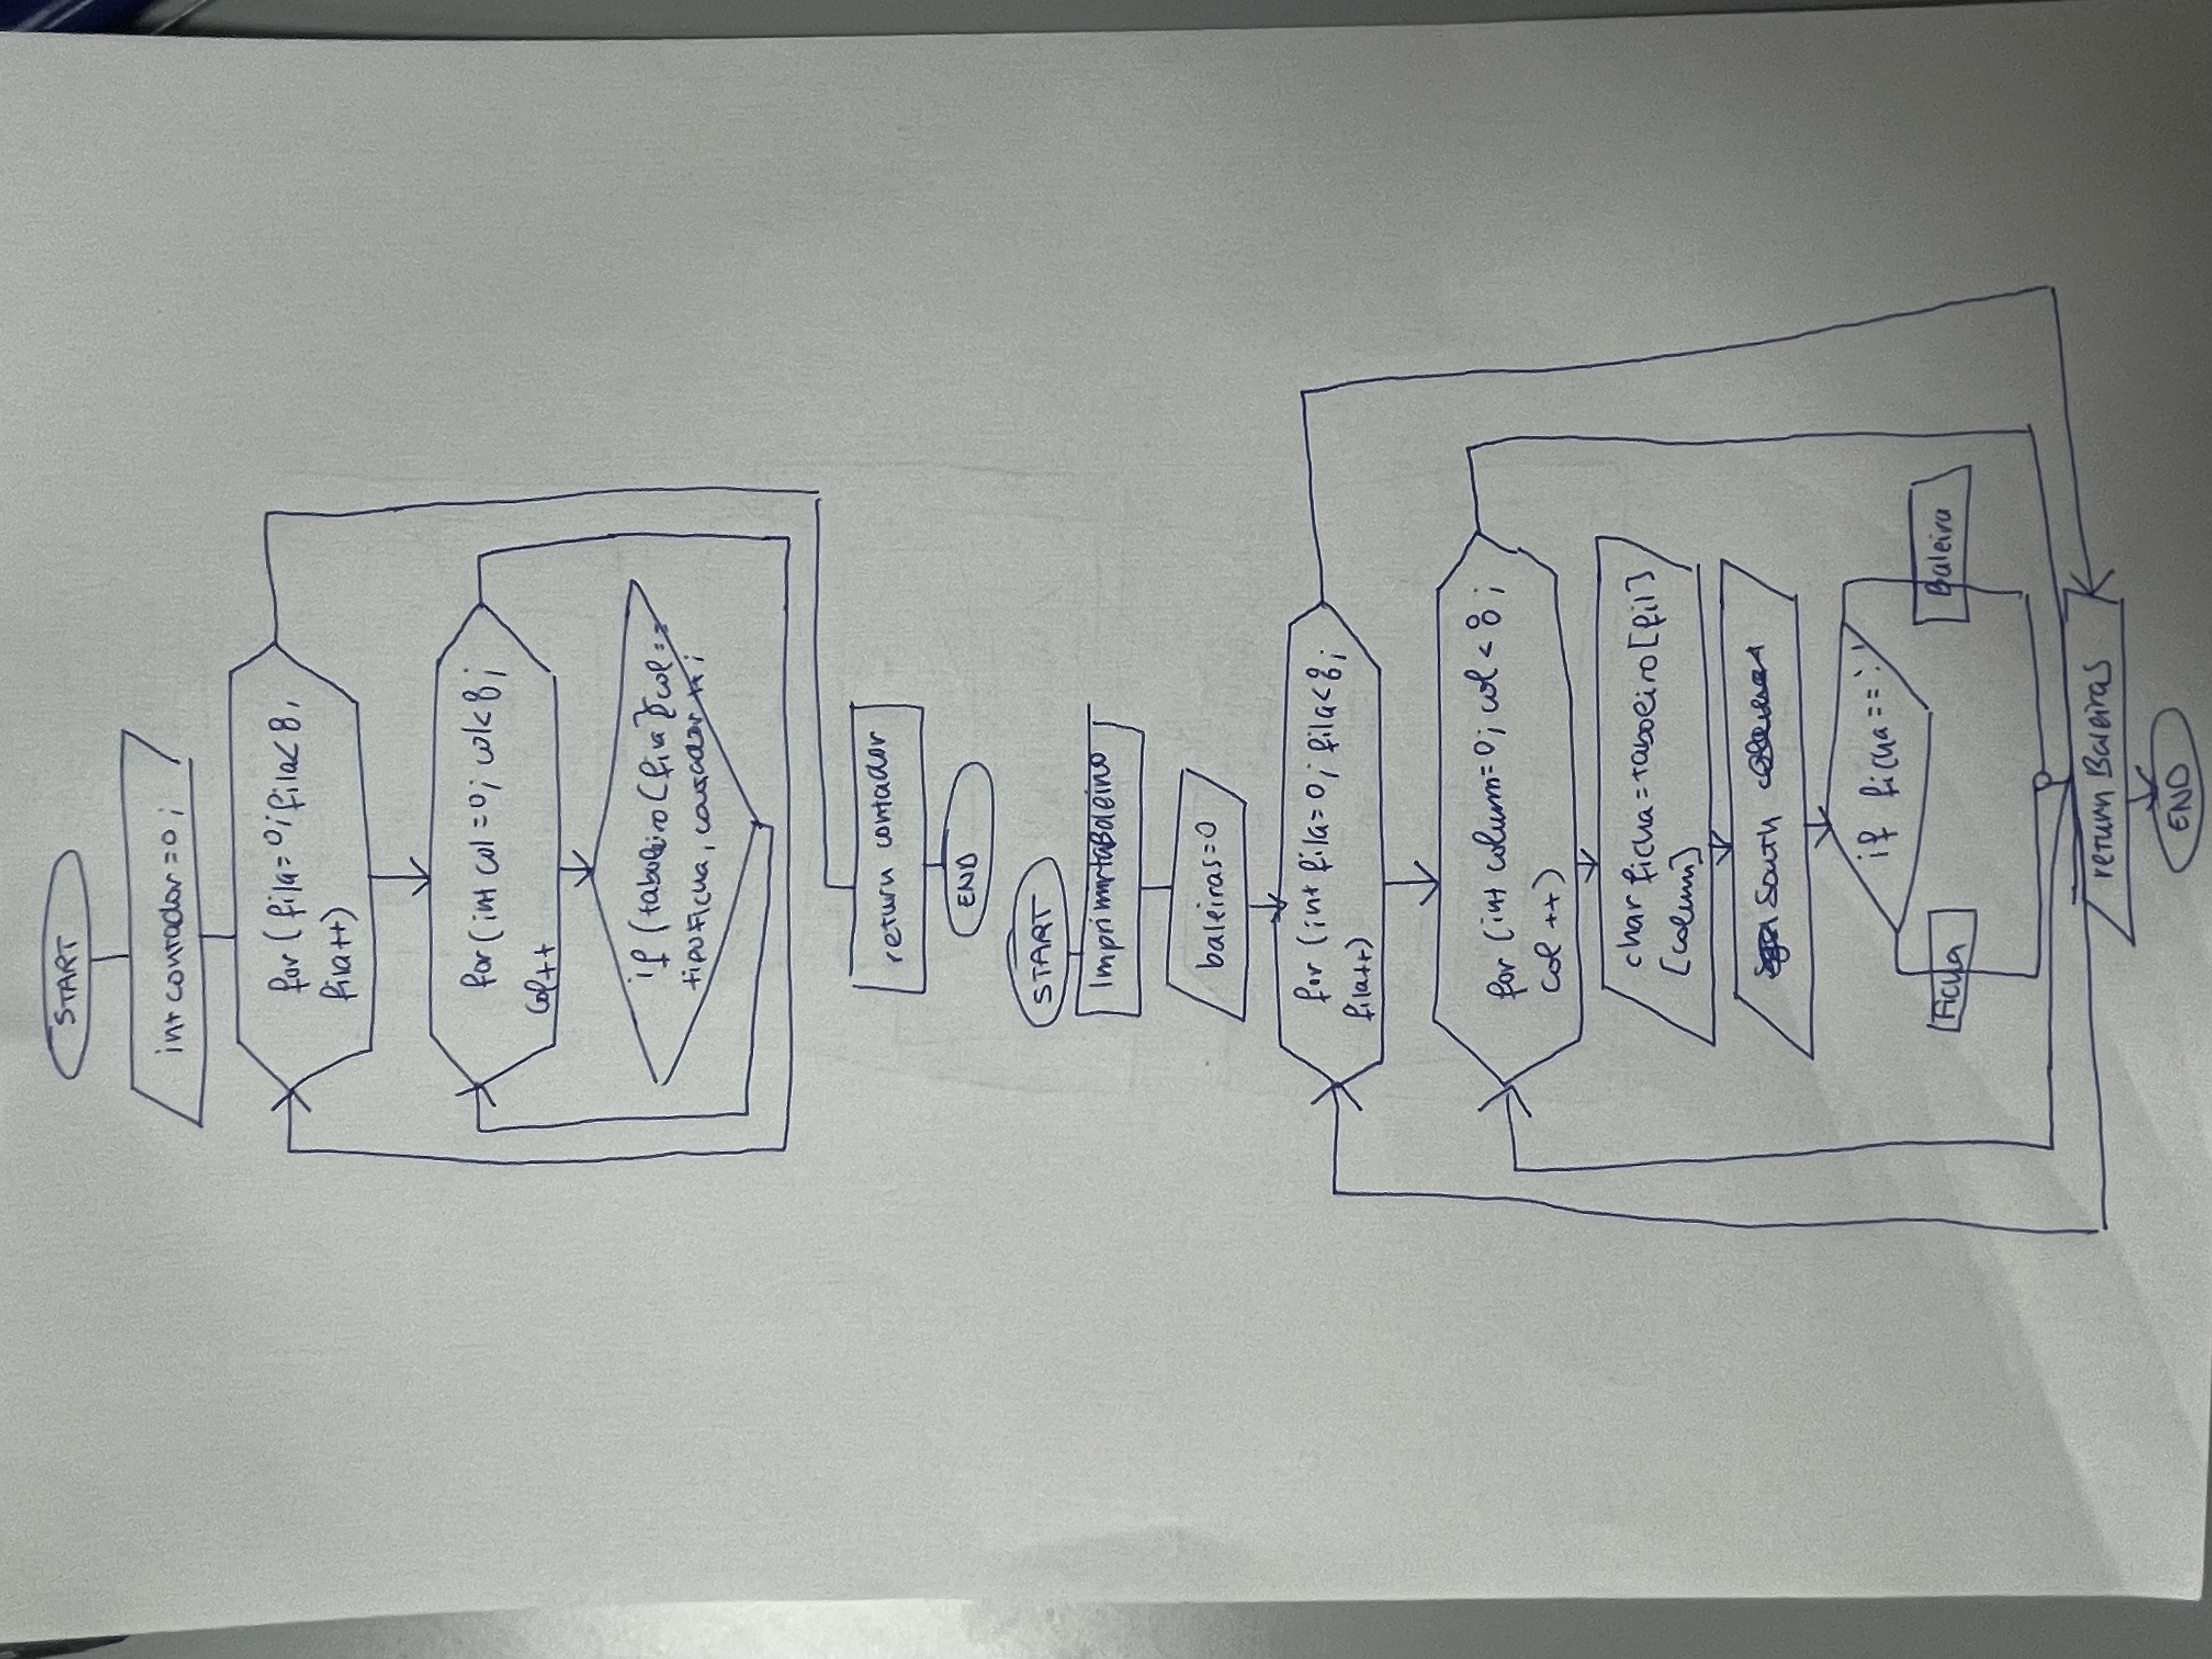 START
int contador = 0 ;
for ( fila = 0 ; fila < 8 ,
fila ++ )
for ( int col = 0 ; col < 8 ;
col ++
if ( taboleiro [ fila ] [ col ==
tipo Ficha , contador ++ ;
return contador
END
START
Imprimirtaboleiro
baleiras = 0
for ( int fila = 0 ; fila < 8 ;
fila ++ )
for ( int column = 0 ; col < 8 ;
col ++ )
char ficha = taboleiro [ fil ]
[ column ]
South
if ficha == ' '
Ficha
Baleira
return Baleiras
END